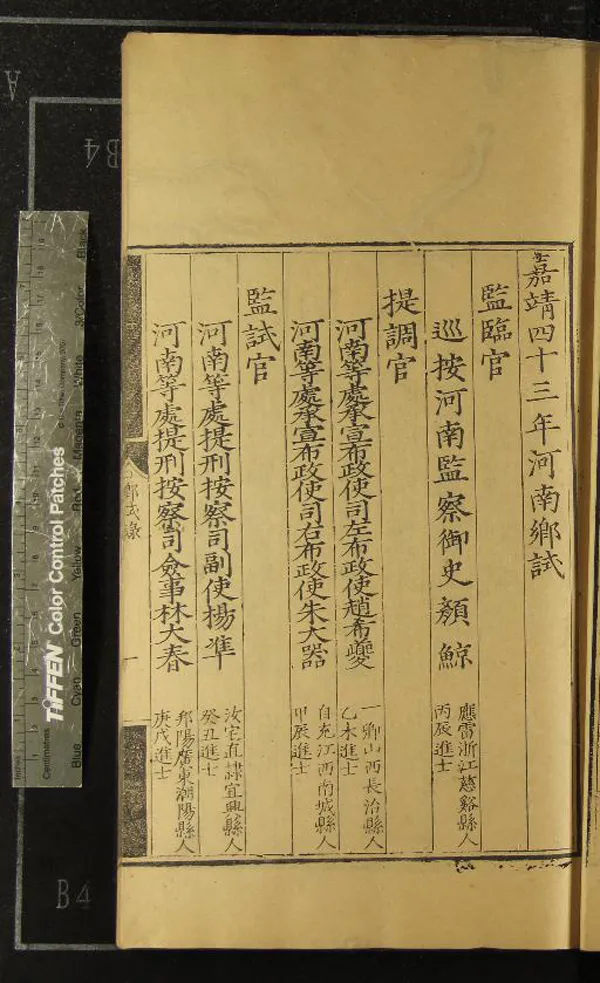 嘉靖四十三年河南鄉試
監臨官
巡按河南監察御史顏鯨
應雷浙江慈谿縣人
丙辰進士
提調官
河南等處承宣布政使司左布政使趙希夔
一卿山西長治縣人
乙未進士
河南等處承宣布政使司右布政使朱大器
自充江西南城縣人
甲辰進士
監試官
河南等處提刑按察司副使楊準
汝定直隷宜興縣人
癸丑進士
河南等處提刑按察司僉事林大春
邦陽廣東潮陽縣人
庚戌進士
鄉試錄
一
TIFFEN Color Control Patches
Blue
Cyan
Green
Yellow
Red
Magenta
White
3/Color
Black
Inches
Centimetres
B4
B4
A